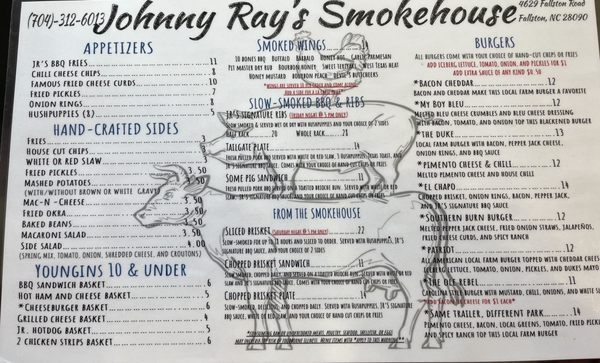 (704)-312-6013
Johnny Ray's Smokehouse
4629 Fallston Road
Fallston, NC 28090
APPETIZERS
JR'S BBQ FRIES 11
CHILI CHEESE CHIPS 8
FAMOUS FRIED CHEESE CURDS 10
FRIED PICKLES 7
ONION RINGS 8
HUSHPUPPIES (8)
HAND-CRAFTED SIDES
FRIES 3
HOUSE CUT CHIPS 3
WHITE OR RED SLAW 3
FRIED PICKLES 3.50
MASHED POTATOES 3.50
(WITH/WITHOUT BROWN OR WHITE GRAVY)
MAC-N-CHEESE 3.50
FRIED OKRA 3.50
BAKED BEANS 3.50
MACARONI SALAD 3.50
SIDE SALAD 4.00
(SPRING MIX, TOMATO, ONION, SHREDDED CHEESE, AND CROUTONS)
YOUNGINS 10 & UNDER
BBQ SANDWICH BASKET 6
HOT HAM AND CHEESE BASKET 6
*CHEESEBURGER BASKET 6
GRILLED CHEESE BASKET 4
JR. HOTDOG BASKET 5
2 CHICKEN STRIPS BASKET 6
SMOKED WINGS
10 BONES BBQ BUFFALO HONEY HOT GARLIC PARMESAN
PIT MASTER DRY RUB BOURBON HONEY SWEET TERIYAKI TEXAS HEAT
HONEY MUSTARD BOURBON PEACH DEVIL'S BUTCHEERS
*WINGS ARE SERVED
ADD A SIDE FOR
SLOW-SMOKED BBQ & RIBS
JR'S SIGNATURE RIBS (FRIDAY NIGHT @ 5 PM ONLY)
SLOW SMOKED & SERVED WET OR DRY WITH HUSHPUPPIES AND YOUR CHOICE OF 2 SIDES
HALF RACK 20 WHOLE RACK 28
TAILGATE PLATE 14
FRESH PULLED PORK SERVED WITH WHITE OR RED SLAW, HUSHPUPPIES, TEXAS TOAST, AND
JR'S SIGNATURE BBQ SAUCE. COMES WITH YOUR CHOICE OF HAND-CUT CHIPS OR FRIES
SOME PIG SANDWICH 11
FRESH PULLED PORK TOASTED BRIOCHE BUN. SERVED WITH WHITE OR RED
SLAW, JR'S SIGNATURE BBQ SAUCE, AND YOUR CHOICE OF HAND-CUT CHIPS OR FRIES
FROM THE SMOKEHOUSE
SLICED BRISKET (SATURDAY NIGHT @ 5 PM ONLY) 22
SLOW-SMOKED FOR UP TO HOURS AND SLICED TO ORDER. SERVED WITH HUSHPUPPIES, JR'S
SIGNATURE BBQ SAUCE, AND YOUR CHOICE OF 2 SIDES
CHOPPED BRISKET SANDWICH 11
SLOW-SMOKED, CHOPPED DAILY, AND SERVED ON A TOASTED BRIOCHE BUN. SERVED WITH WHITE OR RED
SLAW AND YOUR CHOICE OF HAND-CUT CHIPS OR FRIES
CHOPPED BRISKET PLATE
SLOW-SMOKED AND CHOPPED DAILY. SERVED WITH HUSHPUPPIES, JR'S SIGNATURE
BBQ SAUCE, WHITE OR RED SLAW, AND YOUR CHOICE OF HAND CUT CHIPS OR FRIES
*CONSUMING RAW OR UNDERCOOKED MEATS, POULTRY, SEAFOOD, SHELLFISH, OR EGGS
MAY INCREASE YOUR RISK OF FOODBORNE ILLNESS. MENU ITEMS WITH * APPLY TO THIS WARNING**
BURGERS
ALL BURGERS COME WITH YOUR CHOICE OF HAND-CUT CHIPS OR FRIES
ADD ICEBERG LETTUCE, TOMATO, ONION, AND PICKLES FOR $1
ADD EXTRA SAUCE OF ANY KIND $0.50
*BACON CHEDDAR 12
BACON AND CHEDDAR MAKE THIS LOCAL FARM BURGER A FAVORITE
*MY BOY BLEU 12
MELTED BLEU CHEESE CRUMBLES AND BLEU CHEESE DRESSING
WITH BACON, TOMATO, AND ONION TOP THIS BLACKENED BURGER
*THE DUKE 13
LOCAL FARM BURGER WITH BACON, PEPPER JACK CHEESE,
ONION RINGS, AND BBQ SAUCE
*PIMENTO CHEESE & CHILI 12
MELTED PIMENTO CHEESE AND HOUSE CHILI
*EL CHAPO 14
CHOPPED BRISKET, ONION RINGS, BACON, PEPPER JACK,
AND JR'S SIGNATURE BBQ SAUCE
*SOUTHERN BURN BURGER 12
MELTED PEPPER JACK CHEESE, FRIED ONION STRAWS, JALAPEÑOS,
FRIED CHEESE CURDS, AND SPICY RANCH
*PATRIOT 12
ALL AMERICAN LOCAL FARM BURGER TOPPED WITH CHEDDAR CHEESE,
LETTUCE, TOMATO, ONION, PICKLES, AND DUKES MAYO
*THE OLE REBEL 11
CAROLINA STYLE BURGER WITH MUSTARD, CHILI, ONIONS, AND WHITE SLAW
ADD BACON OR CHEESE FOR $1 EACH*
*SAME TRAILER, DIFFERENT PARK 14
PIMENTO CHEESE, BACON, LOCAL GREENS, TOMATO, FRIED PICKLES
AND SPICY RANCH TOP THIS LOCAL FARM BURGER